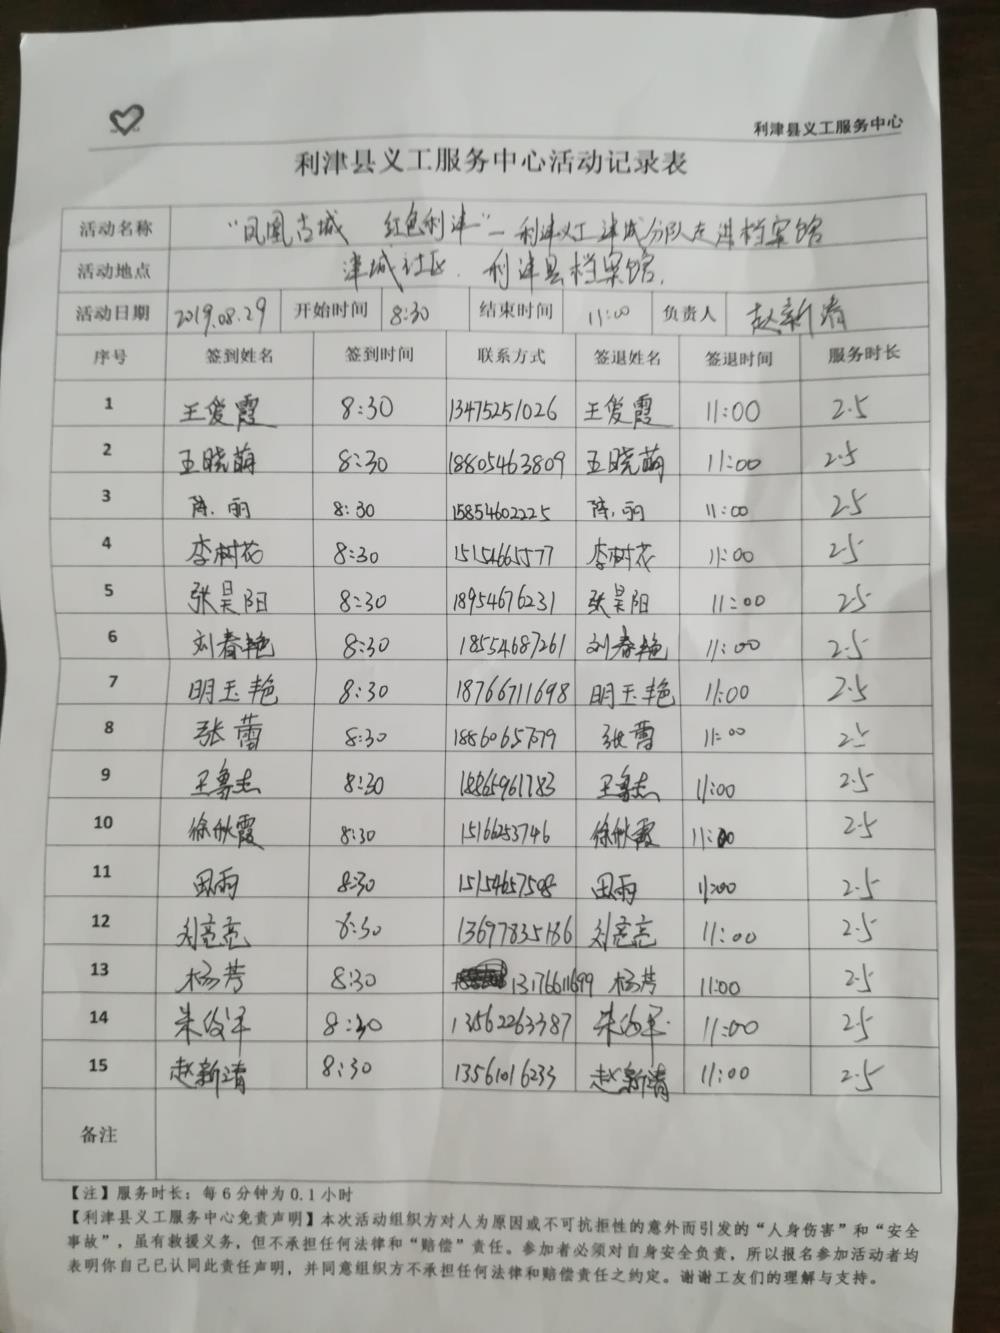 利津县义工服务中心
利津县义工服务中心活动记录表
活动名称 “凤凰古城 红色利津”—利津义工津城分队走进档案馆
活动地点 津城社区、利津县档案馆.
活动日期 2019.08.29 开始时间 8:30 结束时间 11:00 负责人 赵新清
序号 签到姓名 签到时间 联系方式 签退姓名 签退时间 服务时长
1 王爱霞 8:30 13475251026 王爱霞 11:00 2.5
2 王晓萌 8:30 18805463809 王晓萌 11:00 2.5
3 陈丽 8:30 15854602225 陈丽 11:00 2.5
4 李树花 8:30 15154665577 李树花 11:00 2.5
5 张昊阳 8:30 18954676231 张昊阳 11:00 2.5
6 刘春艳 8:30 18554687261 刘春艳 11:00 2.5
7 明玉艳 8:30 18766711698 明玉艳 11:00 2.5
8 张蕾 8:30 张蕾 11:00 2.5
9 王鲁杰 8:30 18865961783 王鲁杰 11:00 2.5
10 徐秋霞 8:30 15166253746 徐秋霞 11:00 2.5
11 田雨 8:30 15154657598 田雨 11:00 2.5
12 刘亮亮 8:30 13697835186 刘亮亮 11:00 2.5
13 杨芳 8:30 13176611699 杨芳 11:00 2.5
14 朱俊军 8:30 13562263387 朱俊军 11:00 2.5
15 赵新清 8:30 13561016233 赵新清 11:00 2.5
备注
【注】服务时长：每6分钟为0.1小时
【利津县义工服务中心免责声明】本次活动组织方对人为原因或不可抗拒性的意外而引发的“人身伤害”和“安全
事故”，虽有救援义务，但不承担任何法律和“赔偿”责任。参加者必须对自身安全负责，所以报名参加活动者均
表明你自己已认同此责任声明，并同意组织方不承担任何法律和赔偿责任之约定。谢谢工友们的理解与支持。